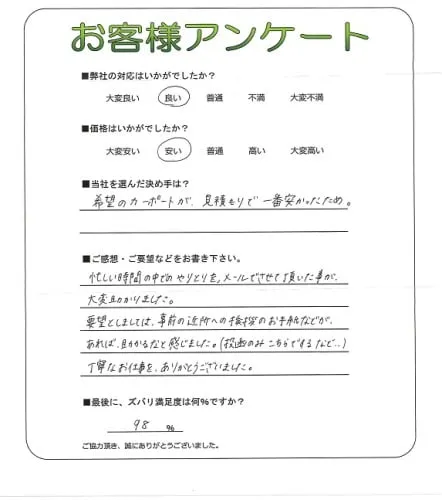 お客様アンケート
■弊社の対応はいかがでしたか？
大変良い 良い 普通 不満 大変不満
■価格はいかがでしたか？
大変安い 安い 普通 高い 大変高い
■当社を選んだ決め手は？
希望のカーポートが、見積もりで一番安かったため。
■ご感想・ご要望などをお書き下さい。
忙しい時間の中でのやりとりを、メールでさせて頂いた事が、
大変助かりました。
要望としましては、事前の近所への挨拶のお手紙などが、
あれば、助かるなと感じました。(投函のみこちらでするなど…)
丁寧なお仕事を、ありがとうございました。
■最後に、ズバリ満足度は何%ですか？
98 %
ご協力頂き、誠にありがとうございました。